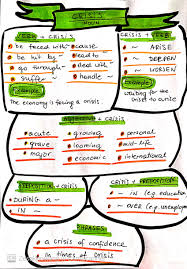 CRISIS
NOUN
VERB + CRISIS
be faced with
cause
be hit by
lead to
go through
deal with
suffer
handle
Example
The economy is facing a crisis
CRISIS + VERB
~ ARISE
~ DEEPEN
~ WORSEN
Example
waiting for the
onset to
ADJECTIVE + CRISIS
acute
growing
personal
grave
looming
mid-life
major
economic
international
PREPOSITION + CRISIS
DURING a ~
IN ~
CRISIS + PREPOSITION
~ in (e.g. education
~ over (e.g.
PHRASES
a crisis of confidence
in times of crisis